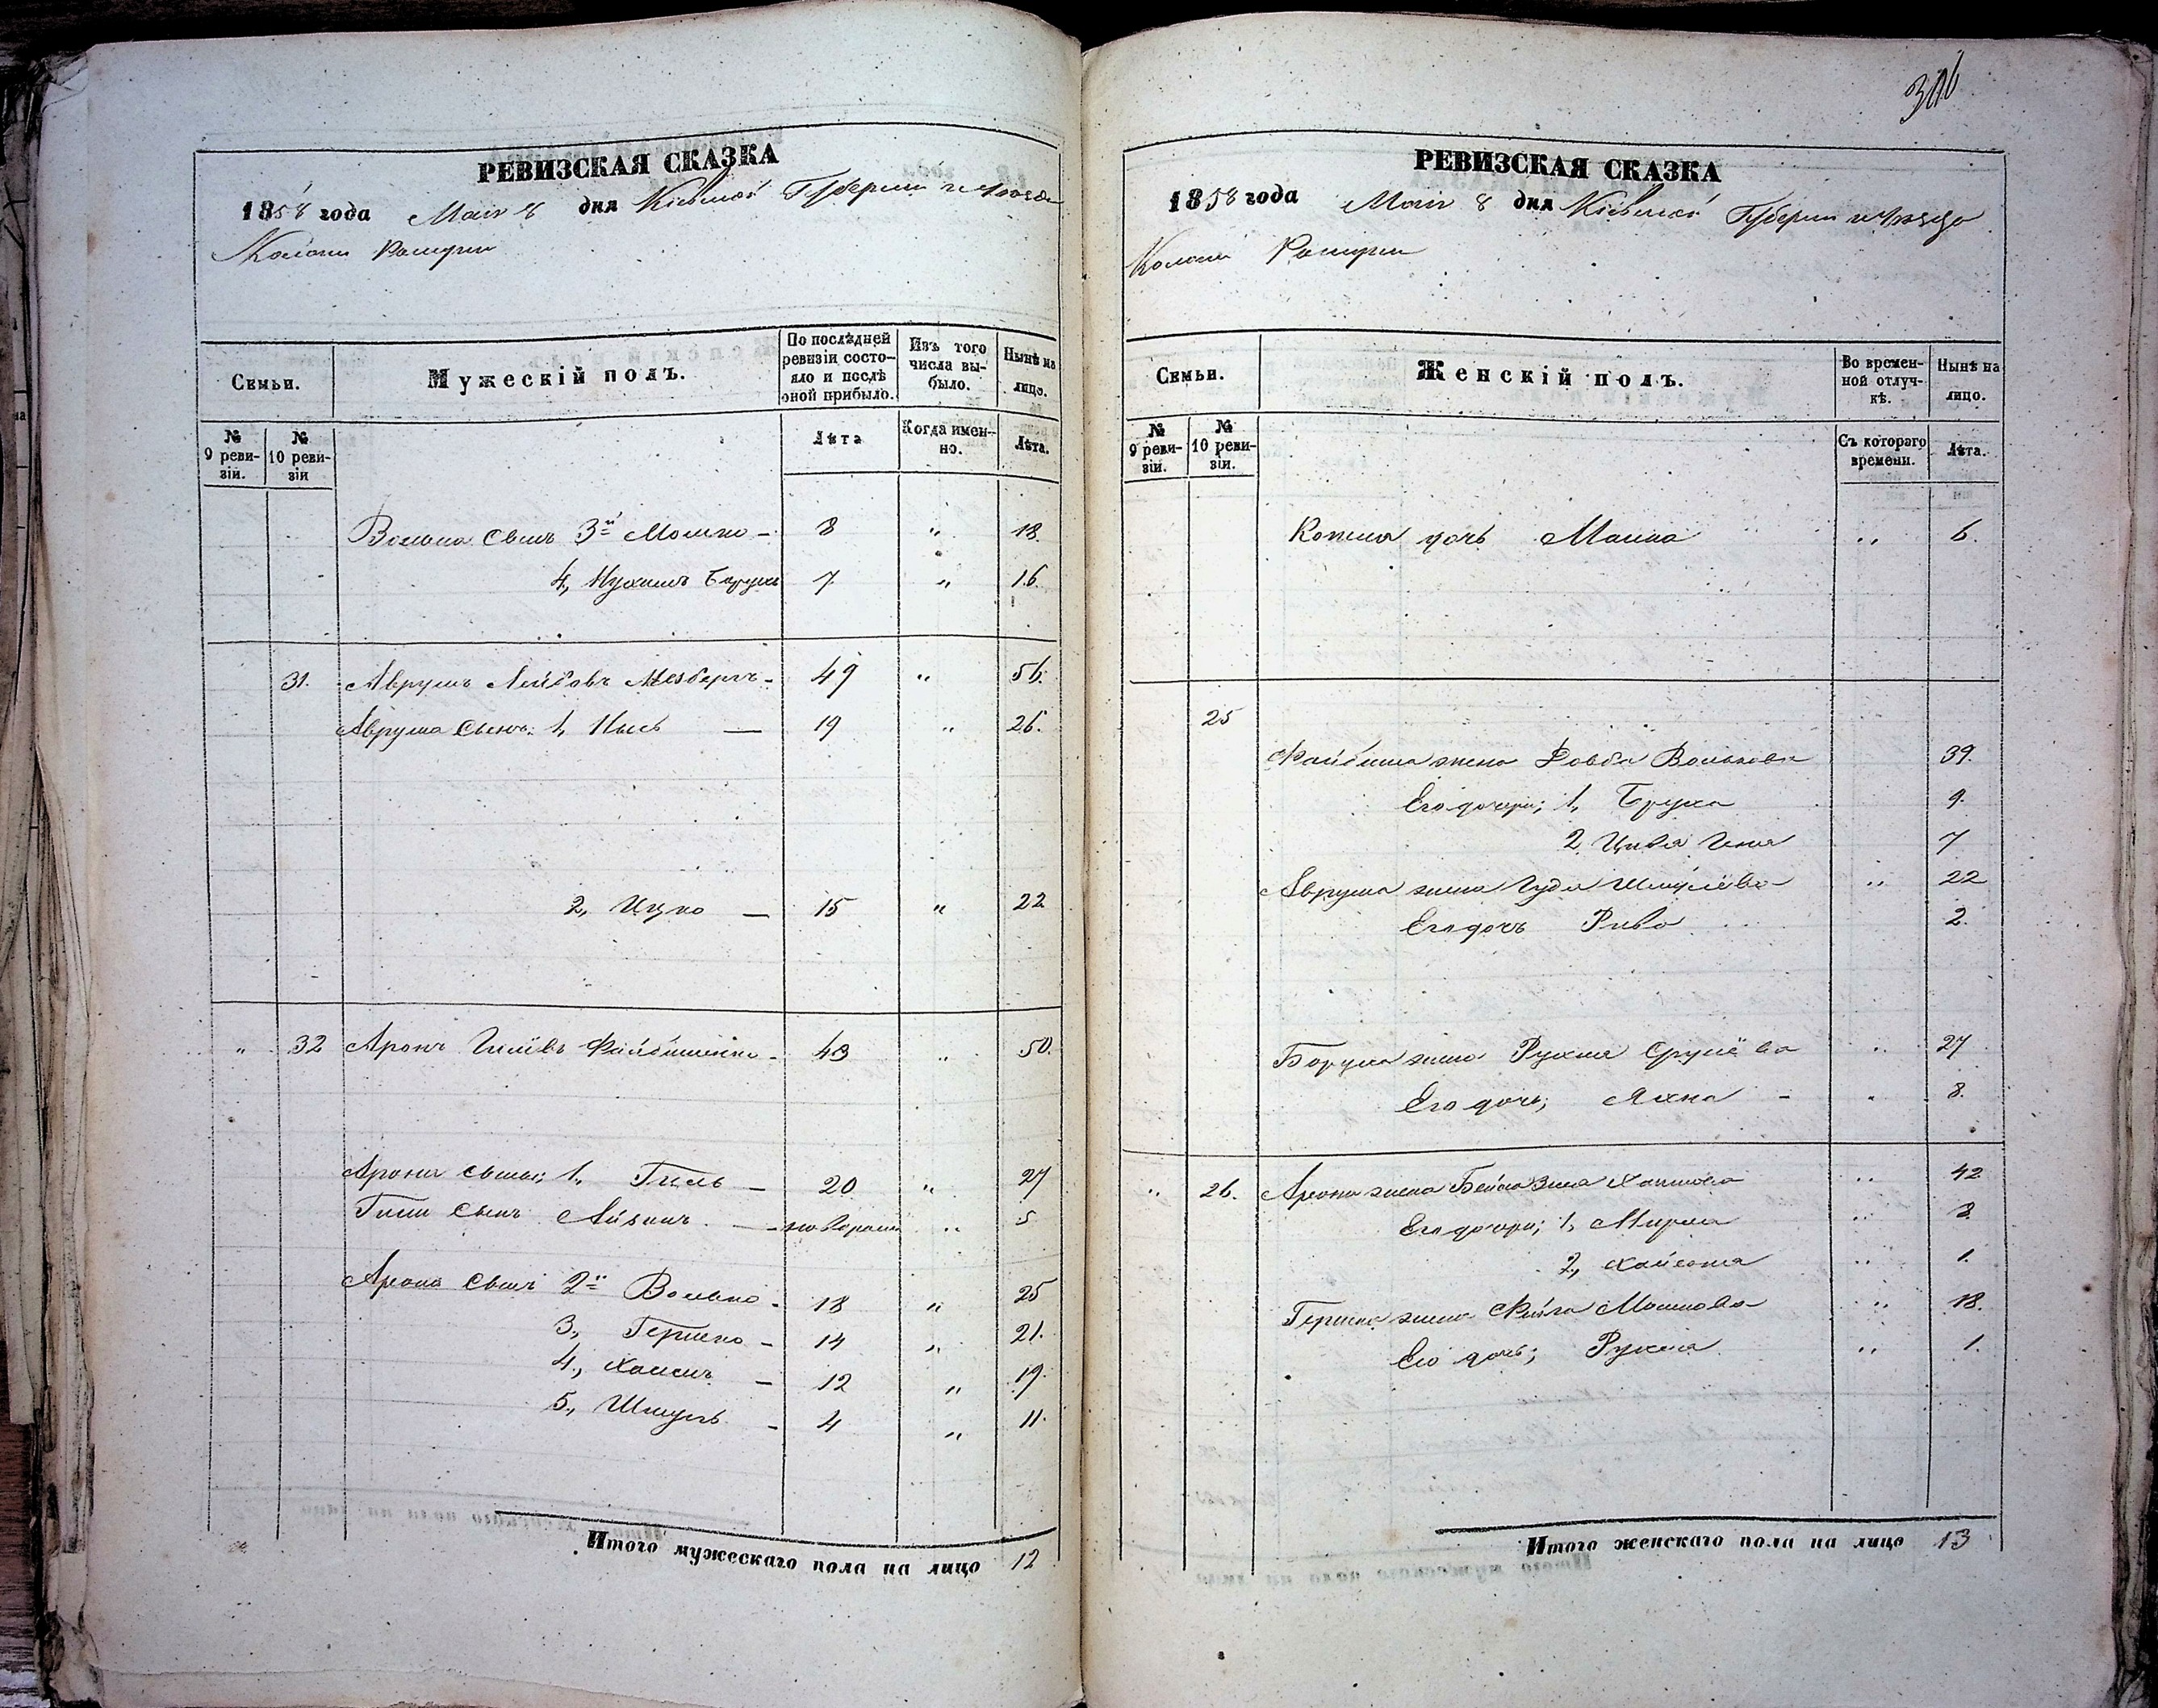 РЕВИЗСКАЯ СКАЗКА
1858 года Мая 8 дня Кіевской Губерніи и Уезда
Колоніи
Семьи.
Мужескій полъ.
По послѣдней ревизіи состояло и послѣ оной прибыло.
Изъ того числа выбыло.
Нынѣ на лицо.
№ 9 ревизіи.
№ 10 ревизіи
Лѣта
Когда именно.
Лѣта.
Волька Сынъ 3й Мошко - 8 " 18.
4, Нухимъ Борухъ 7 " 16.
31. Аврумъ Лейбовъ - 49 " 56.
Аврума Сынъ: 1, — 19 " 26.
2, Ицко — 15 " 22
" 32 Аронъ - 43 " 50.
Арона Сыны; 1, Гиль — 20 " 27
Гиля Сынъ Айзикъ. — новорожд " 5
Арона Сынъ 2й Волько - 18 " 25
3, Гершко - 14 " 21.
4, Хаимъ — 12 " 19.
5, Шмуль - 4 " 11.
Итого мужескаго пола на лицо 12
306
РЕВИЗСКАЯ СКАЗКА
1858 года Мая 8 дня Кіевской Губерніи и Уезда
Колоніи
Семьи.
Женскій полъ.
Во временной отлучкѣ.
Нынѣ на лицо.
№ 9 ревизіи.
№ 10 ревизіи.
Съ котораго времени.
Лѣта.
дочь Малка " 6.
25
Файбиша жена Вольковa 39.
Его дочери; 1, Бруха 9.
2, Цивья 7
Аврума жена Гудя Шмулёва " 22
Его дочь Рива 2.
Боруха жена Рухля Срулёва " 27
Его дочь; Яхна - " 8.
" 26. Арона жена Бейла Хаимова " 42
Его дочери; 1, Мирля " 3.
2, " 1.
Гершка жена Фейга Мошкова " 18.
Его дочь; Рухля " 1.
Итого женскаго пола на лицо 13